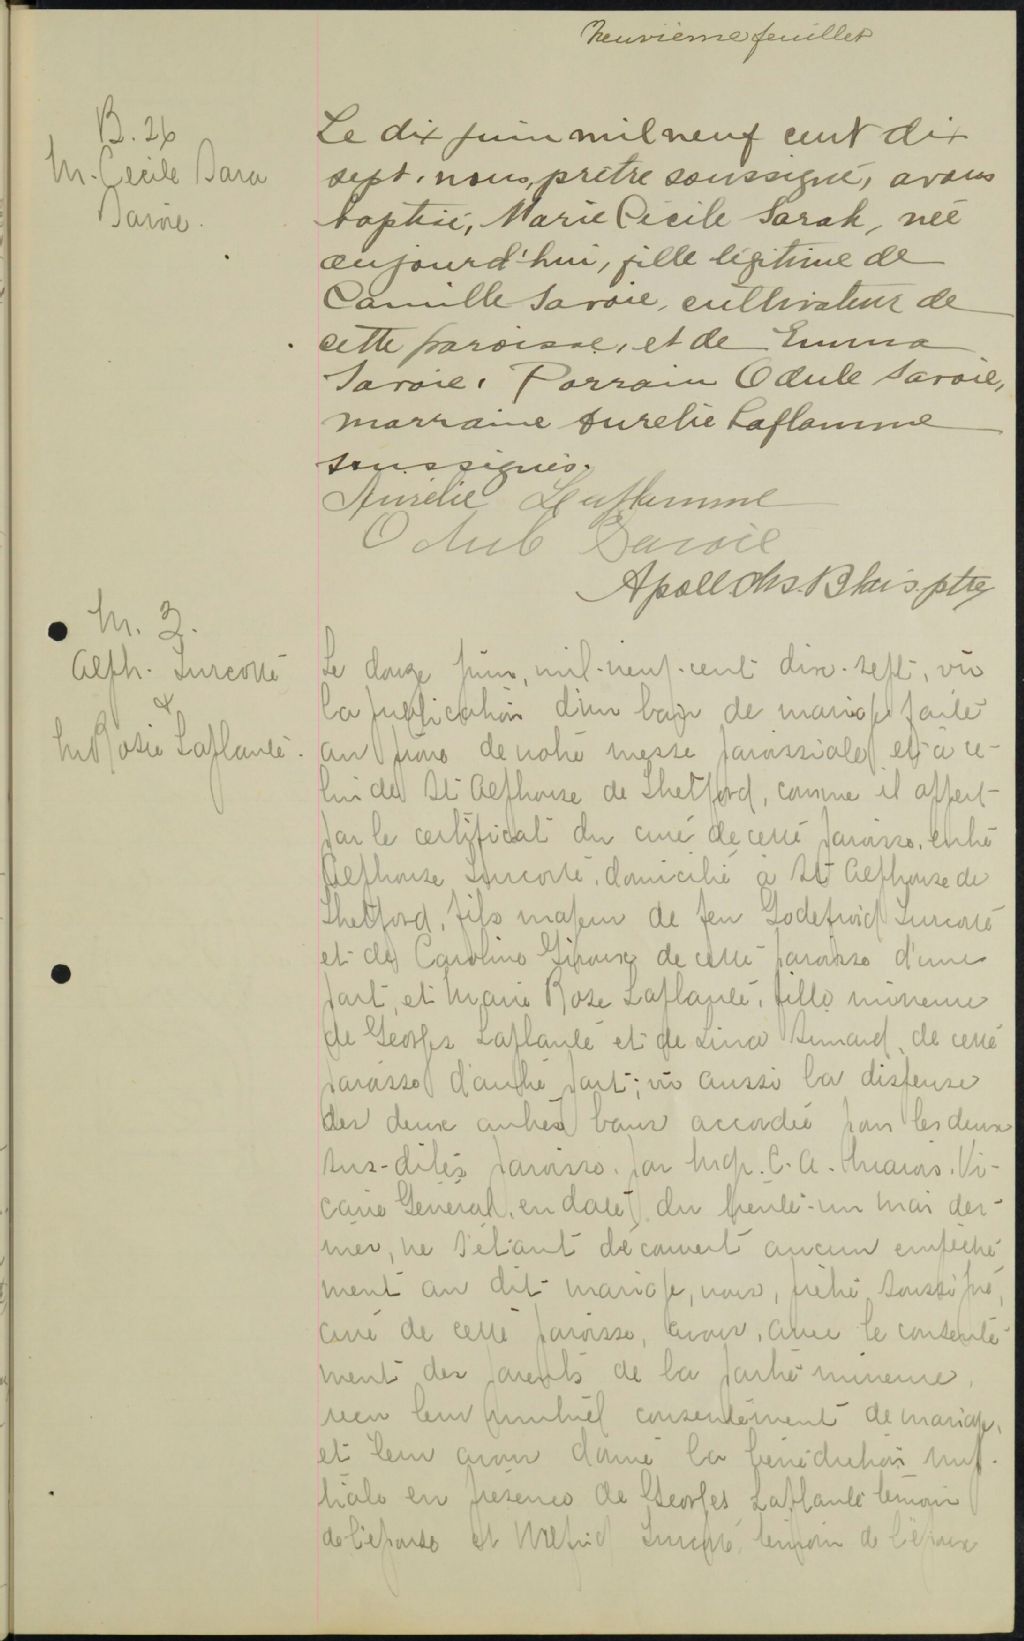 Neuvième feuillet
B. 26
M. Cécile Sara
Savoie.
Le dix juin mil neuf cent dix
sept, nous, prêtre soussigné, avons
baptisé, Marie Cécile Sarah, née
aujourd'hui, fille légitime de
Camille Savoie, cultivateur de
cette paroisse, et de Emma
Savoie. Parrain Odule Savoie,
marraine Aurelie Laflamme
soussignés.
Aurélie Laflamme
Odule Savoie
Apoll. Chs. Blais. ptre
M. 3.
Alph. Turcotte
&
M Rosie Laplante.
Le douze juin, mil-neuf-cent dix-sept, vu
la publication d'un ban de mariage faite
au prône de notre messe paroissiale et à ce-
lui de St Alphonse de Thetford, comme il appert
par le certificat du curé de cette paroisse, entre
Alphonse Turcotte, domicilié à St Alphonse de
Thetford, fils majeur de feu Godefroid Turcotte
et de Caroline Giroux de cette paroisse d'une
part, et Marie Rose Laplante, fille mineure
de Georges Laplante et de Lina Simard, de cette
paroisse d'autre part; vu aussi la dispense
des deux autres bans accordée pour les deux
sus-dites paroisse, par Mgr. C. A. Marois, Vi-
caire Général, en date du trente-un mai der-
nier, ne s'étant découvert aucun empêche-
ment au dit mariage, nous, prêtre soussigné,
curé de cette paroisse, avons, avec le consente-
ment des parents de la partie mineure,
reçu leur mutuel consentement de mariage,
et leur avons donné la bénédiction nup-
tiale en présence de Georges Laplante témoin
de l'épouse et Wilfrid Turcotte, témoin de l'époux